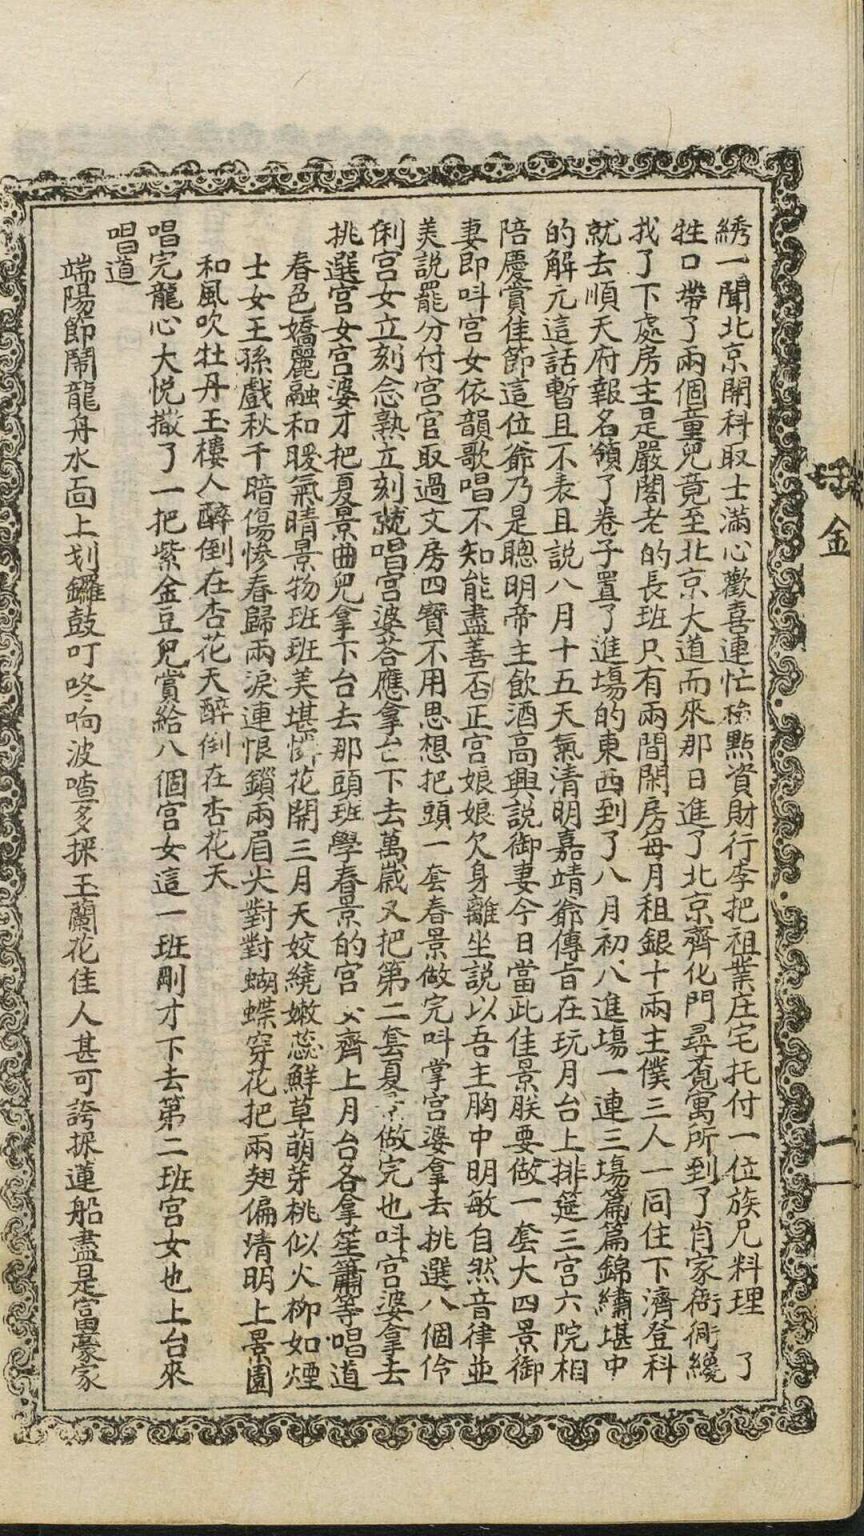 綉一聞北京開科取士滿心歡喜連忙檢點資財行李把祖業庄宅托付一位族兄料理 了
牲口帶了兩個童兒竟至北京大道而來那日進了北京齊化門尋覓寓所到了肖家衚衕纔
找了下處房主是嚴閣老的長班只有兩間閑房每月租銀十兩主僕三人一同住下濟登科
就去順天府報名領了卷子置了進塲的東西到了八月初八進塲一連三塲篇篇錦繡堪中
的解元這話暫且不表且説八月十五天氣清明嘉靖爺傳旨在玩月台上排筵三宮六院相
陪慶賞佳節這位爺乃是聰明帝主飲酒高興説御妻今日當此佳景朕要做一套大四景御
妻即呌宮女依韻歌唱不知能盡善否正宮娘娘欠身離坐説以吾主胸中明敏自然音律並
美説罷分付宮官取過文房四寶不用思想把頭一套春景做完呌掌宮婆拿去挑選八個伶
俐宮女立刻念熟立刻就唱宮婆荅應拿亡下去萬歲又把第二套夏京做完也呌宮婆拿去
挑選宮女宮婆才把夏景曲兒拿下台去那頭班學春景的宮 女齊上月台各拿笙簫等唱道
春色嬌麗融和暖氣晴景物班班美堪憐花開三月天姣繞嫩蕊鮮草萌芽桃似火柳如煙
士女王孫戲秋千暗傷慘春歸兩淚連恨鎖兩眉尖對對蝴蝶穿花把兩翅偏清明上景園
和風吹牡丹玉樓人醉倒在杏花天醉倒在杏花天
唱完龍心大悅撒了一把紫金豆兒賞給八個宮女這一班剛才下去第二班宮女也上台來
唱道
端陽節鬧龍舟水面上划鑼鼓叮咚响波喳多採玉蘭花佳人甚可誇採蓮船盡是富豪家
金
一